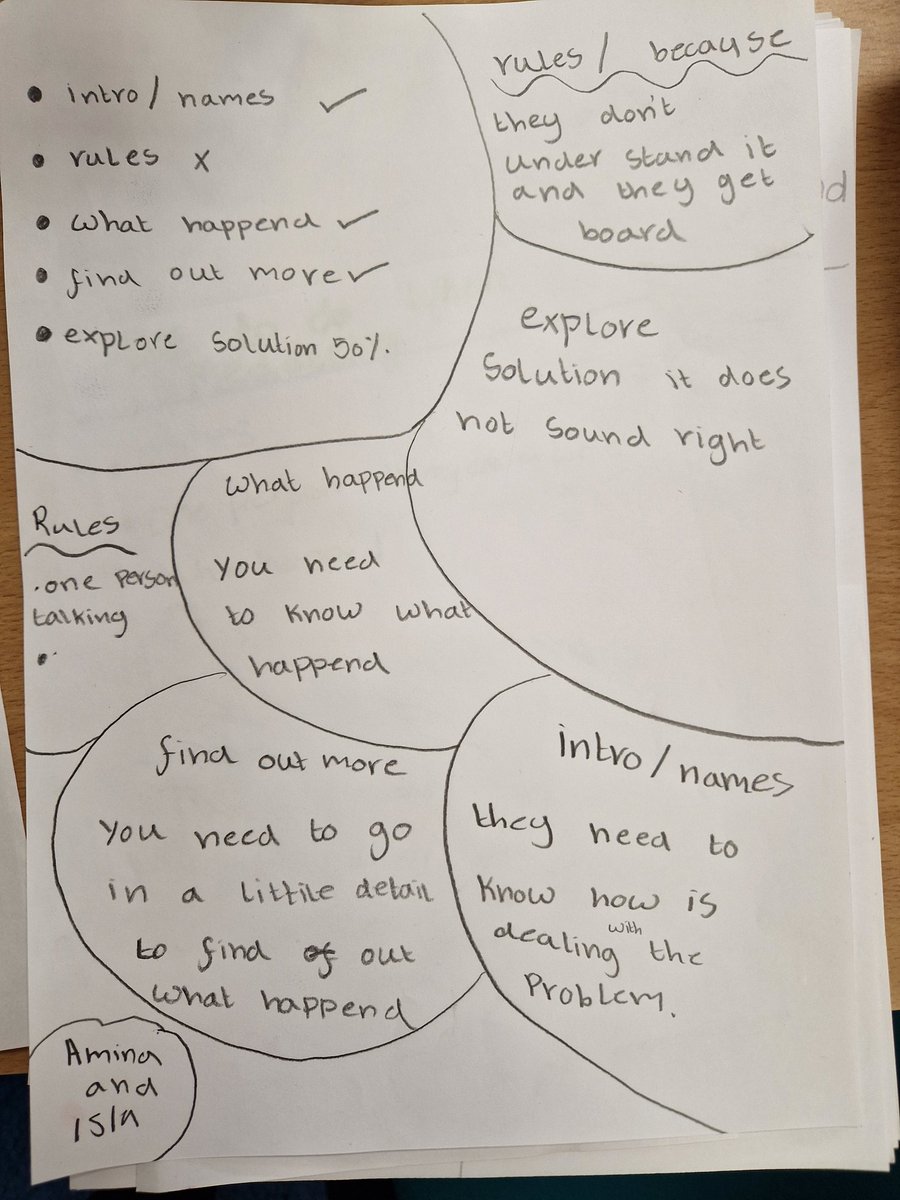 • intro / names ✓
• rules x
• what happend ✓
• find out more ✓
• explore solution 50%.
rules / because
they don't
under stand it
and they get
board
explore
solution it does
not sound right
Rules
. one person
talking
•
what happend
you need
to know what
happend
find out more
you need to go
in a littile detail
to find of out
what happend
intro / names
they need to
know how is
dealing with the
problem.
Amina
and
Isla